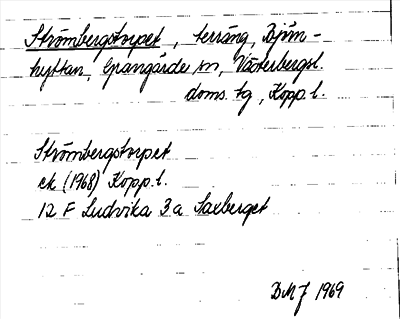 Strömbergstorpet, terräng, Björn-
hyttan, Grangärde sn, Västerbergsl.
doms. tg, Kopp. l.
Strömbergstorpet
ek (1968) Kopp. l.
12 F Ludvika 3 a Saxberget
DMJ 1969